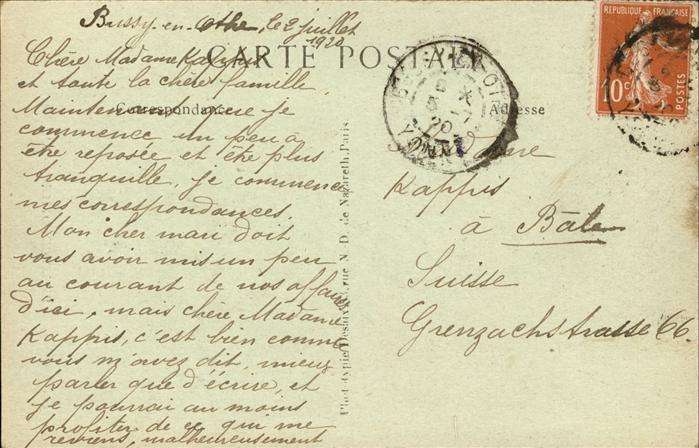 Bussy-en-Othe, le 2 juillet
1920
CARTE POSTALE
Chère Madame Kappis
et toute la chère famille.
Correspondance
Maintenant que je
commence un peu à
être reposée et être plus
tranquille, je commence
mes correspondances.
Mon cher mari doit
vous avoir mis un peu
au courant de nos affaires
d'ici, mais chère Madame
Kappis, c'est bien comme
vous m'avez dit, mieux
parler que d'écrire, et
je pourrai au moins
profiter de ce qui me
reviens, malheureusement
REPUBLIQUE FRANÇAISE
10c
POSTES
Adresse
Kappis
à Bâle
Suisse
Grenzachstrasse 66.
N. D. de Nazareth, Paris.